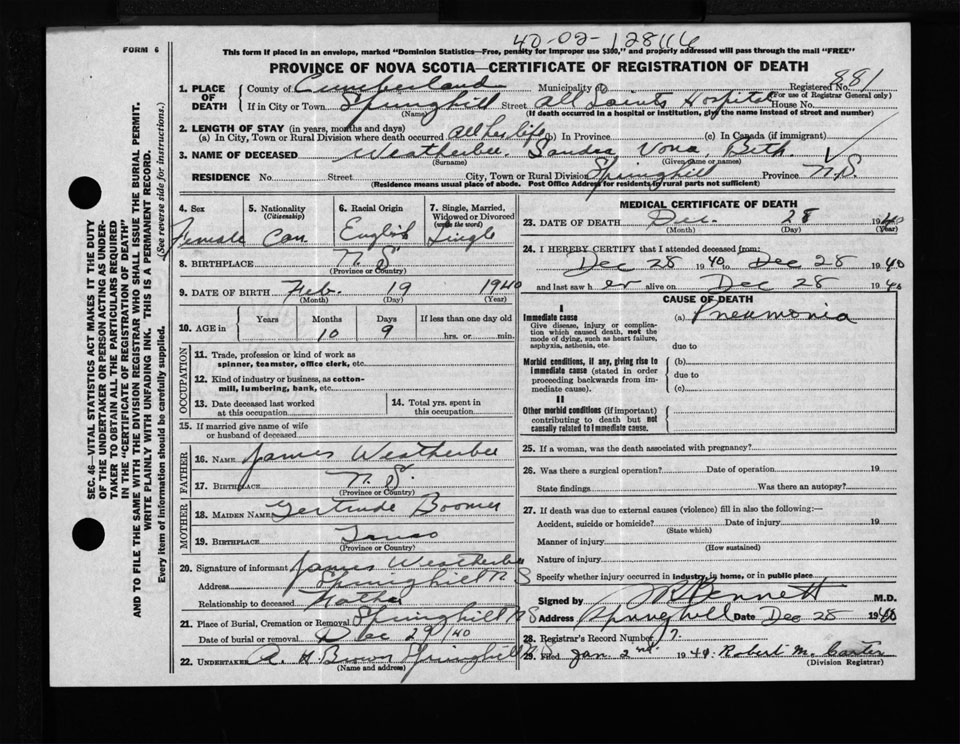 40-02-128116
FORM 6
This form if placed in an envelope, marked "Dominion Statistics—Free, penalty for improper use $300," and properly addressed will pass through the mail "FREE"
PROVINCE OF NOVA SCOTIA—CERTIFICATE OF REGISTRATION OF DEATH
1. PLACE OF DEATH County of Cumberland Municipality of Registered No. 881
(For use of Registrar General only)
If in City or Town Springhill Street All Saints Hospital House No.
(Name) (If death occurred in a hospital or institution, give the name instead of street and number)
2. LENGTH OF STAY (in years, months and days)
(a) In City, Town or Rural Division where death occurred all her life (b) In Province (c) In Canada (if immigrant)
3. NAME OF DECEASED Weatherbee. Sandra Vona, Beth.
(Surname) (Given name or names)
RESIDENCE No. Street City, Town or Rural Division Springhill Province N.S.
(Residence means usual place of abode. Post Office Address for residents in rural parts not sufficient)
4. Sex Female
5. Nationality (Citizenship) Can
6. Racial Origin English
7. Single, Married, Widowed or Divorced (write the word) Single
8. BIRTHPLACE N.S.
(Province or Country)
9. DATE OF BIRTH Feb. 19 1940
(Month) (Day) (Year)
10. AGE in Years Months Days If less than one day old
10 9 hrs. or min.
OCCUPATION
11. Trade, profession or kind of work as spinner, teamster, office clerk, etc.
12. Kind of industry or business, as cotton-mill, lumbering, bank, etc.
13. Date deceased last worked at this occupation
14. Total yrs. spent in this occupation
15. If married give name of wife or husband of deceased
FATHER
16. NAME James Weatherbee
17. BIRTHPLACE N.S.
(Province or Country)
MOTHER
18. MAIDEN NAME Gertrude Boomer
19. BIRTHPLACE
(Province or Country)
20. Signature of informant James Weatherbee
Address Springhill N S
Relationship to deceased Father
21. Place of Burial, Cremation or Removal Springhill N S
Date of burial or removal Dec 29/40
22. UNDERTAKER A. H Brown Springhill N.S
(Name and address)
MEDICAL CERTIFICATE OF DEATH
23. DATE OF DEATH Dec. 28 1940
(Month) (Day) (Year)
24. I HEREBY CERTIFY that I attended deceased from:
Dec 28 1940 to Dec 28 1940
and last saw her alive on Dec 28 1940
CAUSE OF DEATH
I
Immediate cause
Give disease, injury or complication which caused death, not the mode of dying, such as heart failure, asphyxia, asthenia, etc.
(a) Pneumonia
due to
Morbid conditions, if any, giving rise to immediate cause (stated in order proceeding backwards from immediate cause).
(b)
due to
(c)
II
Other morbid conditions (if important) contributing to death but not causally related to immediate cause.
25. If a woman, was the death associated with pregnancy?
26. Was there a surgical operation? Date of operation 19
State findings Was there an autopsy?
27. If death was due to external causes (violence) fill in also the following:—
Accident, suicide or homicide? Date of injury 19
(State which)
Manner of injury
(How sustained)
Nature of injury
Specify whether injury occurred in industry, in home, or in public place
Signed by Bennett M.D.
Address Springhill Date Dec 28 1940
28. Registrar's Record Number 7.
29. Filed Jan. 2nd 1941 Robert M. Carter
(Division Registrar)
SEC. 46—VITAL STATISTICS ACT MAKES IT THE DUTY
OF THE UNDERTAKER OR PERSON ACTING AS UNDER-
TAKER TO OBTAIN ALL THE PARTICULARS REQUIRED
IN THE "CERTIFICATE OF REGISTRATION OF DEATH"
AND TO FILE THE SAME WITH THE DIVISION REGISTRAR WHO SHALL ISSUE THE BURIAL PERMIT.
WRITE PLAINLY WITH UNFADING INK. THIS IS A PERMANENT RECORD.
Every item of information should be carefully supplied. (See reverse side for instructions.)